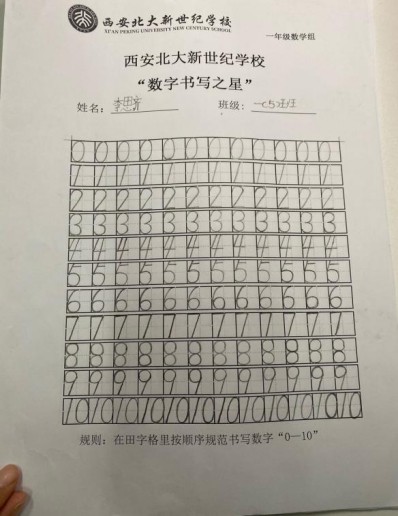 西安北大新世纪学校
XI'AN PEKING UNIVERSITY NEW CENTURY SCHOOL
一年级数学组
西安北大新世纪学校
“数字书写之星”
姓名： 班级：
0 0 0 0 0 0 0 0 0 0 0 0
1 1 1 1 1 1 1 1 1 1 1 1
2 2 2 2 2 2 2 2 2 2 2 2
3 3 3 3 3 3 3 3 3 3 3 3
4 4 4 4 4 4 4 4 4 4 4 4
5 5 5 5 5 5 5 5 5 5 5 5
6 6 6 6 6 6 6 6 6 6 6 6
7 7 7 7 7 7 7 7 7 7 7 7
8 8 8 8 8 8 8 8 8 8 8 8
9 9 9 9 9 9 9 9 9 9 9 9
10 10 10 10 10 10 10 10 10 10 10 10
规则：在田字格里按顺序规范书写数字“0—10”